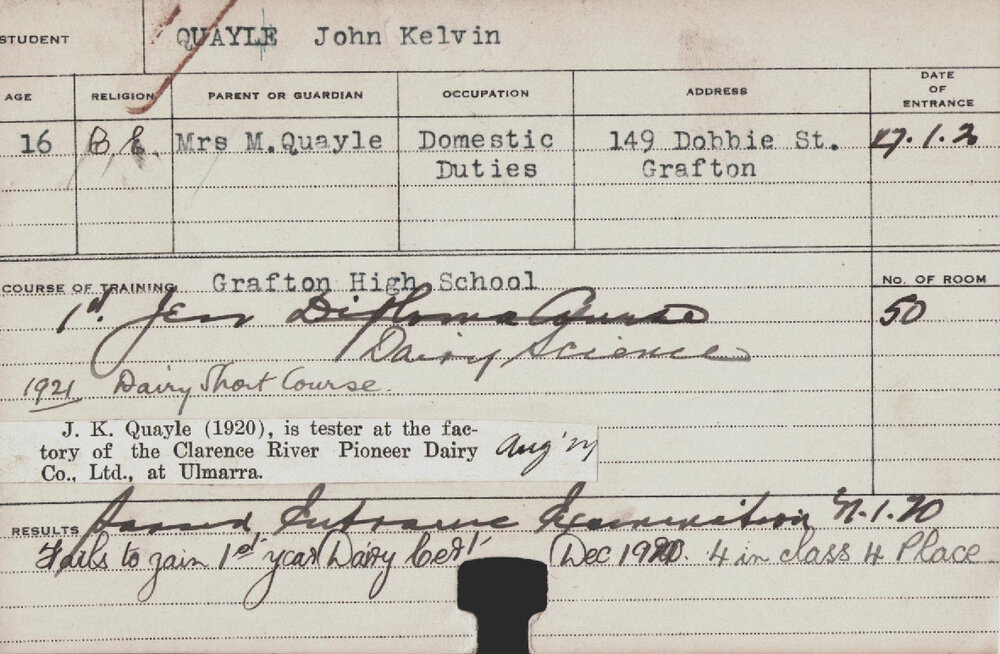 STUDENT QUAYLE John Kelvin
AGE RELIGION PARENT OR GUARDIAN OCCUPATION ADDRESS DATE OF ENTRANCE
16 Mrs M.Quayle Domestic 149 Dobbie St. 27.1.20
Duties Grafton
COURSE OF TRAINING Grafton High School No. OF ROOM
1st. Year Diploma Course 50
Dairy Science
1921 Dairy Short Course.
J. K. Quayle (1920), is tester at the fac-
tory of the Clarence River Pioneer Dairy Aug
Co., Ltd., at Ulmarra.
RESULTS Passed Entrance Examination .1.20
Fails to gain 1st year Dairy Cert Dec 1920. 4 in class 4 Place